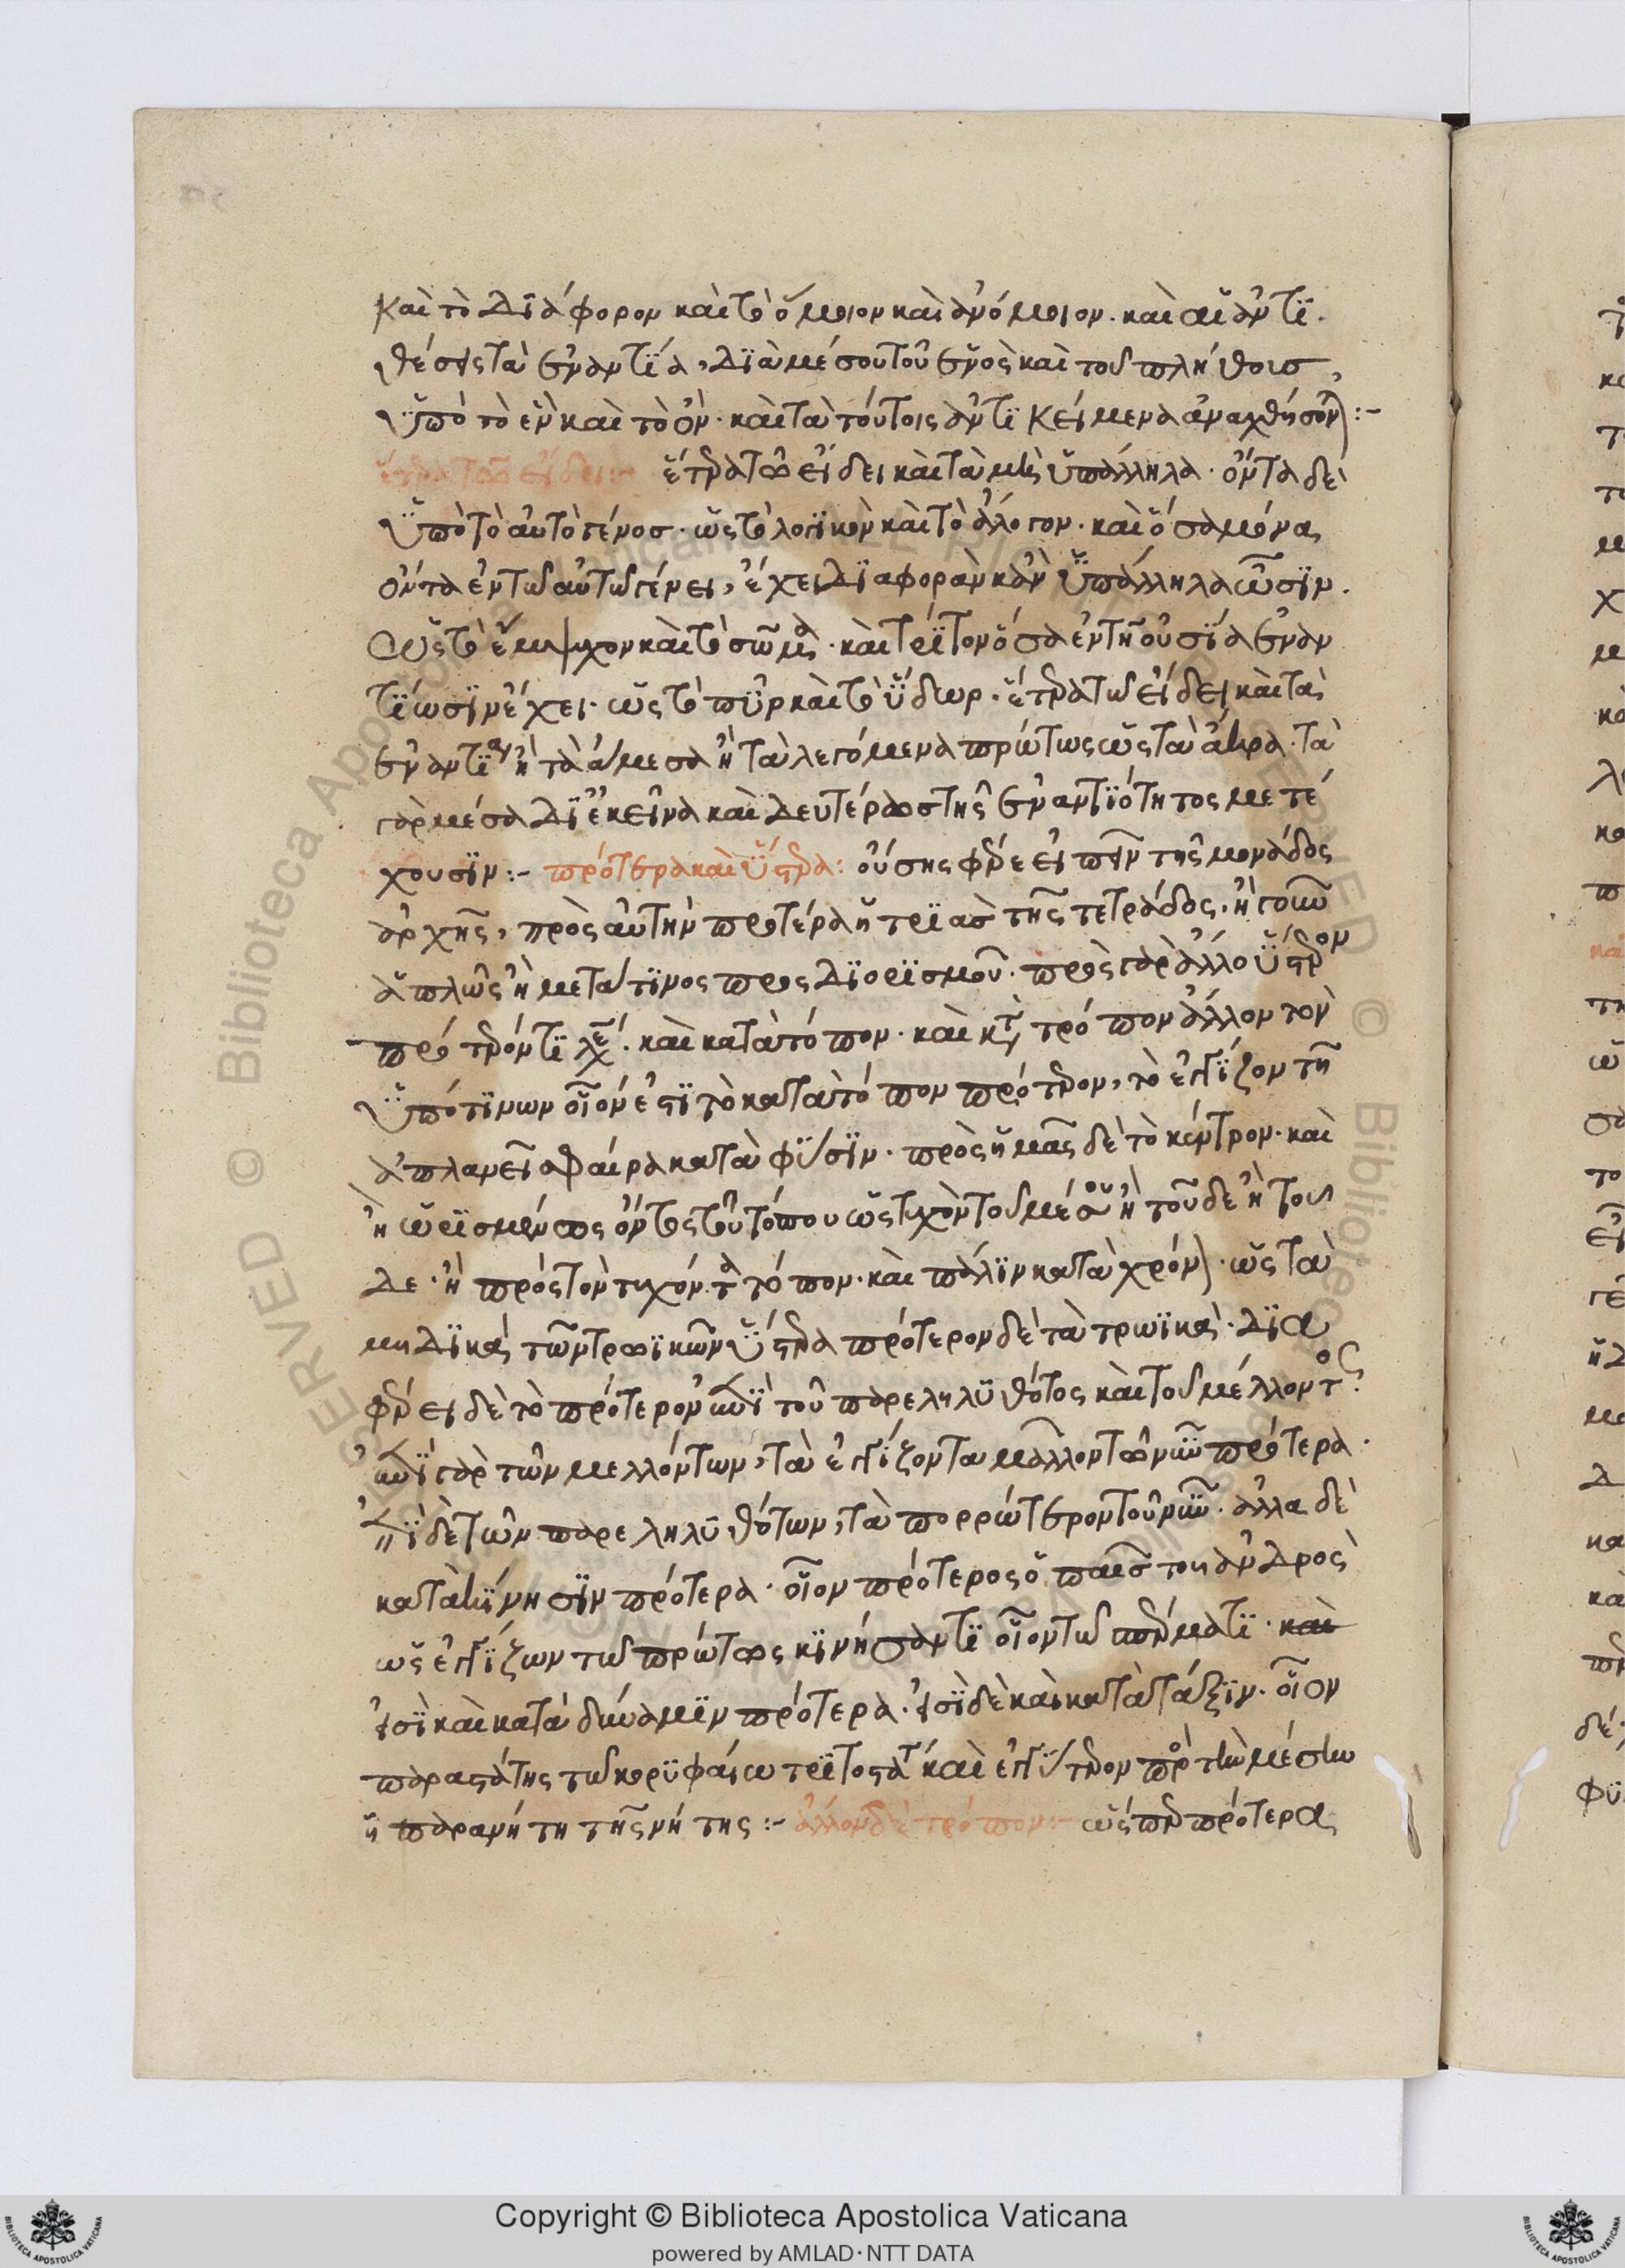 καὶ τὸ διάφορον καὶ τὸ ὅμοιον καὶ ἀνόμοιον. καὶ αἱ ἀντι
θέσεις τὰ ἐναντία, διὰ μέσου τοῦ ἑνὸς καὶ τοῦ πλήθους,
ὑπὸ τὸ ἓν καὶ τὸ ὄν. καὶ τὰ τούτοις ἀντικείμενα ἀναχθήσον) :-
ἕτερα τῶ εἴδει :- ἕτερα τῶ εἴδει καὶ τὰ μὴ ὑπάλληλα. ὄντα δὲ
ὑπὸ τὸ αὐτὸ γένος. ὡς τὸ λογικὸν καὶ τὸ ἄλογον. καὶ ὅσα μόνα
ὄντα ἐν τῶ αὐτῶ γένει, ἔχει διαφορὰν κἂν ὑπάλληλα ὦσιν.
ὡς τὸ ἔμψυχον καὶ τὸ σῶμα. καὶ τρίτον ὅσα ἐν τῆ οὐσία ἐναν
τίωσιν ἔχει. ὡς τὸ πῦρ καὶ τὸ ὕδωρ. ἕτερα τῶ εἴδει καὶ τὰ
ἐναντία ἢ τὰ ἄμεσα ἢ τὰ λεγόμενα πρώτως ὡς τὰ ἄκρα. τὰ
γὰρ μέσα δι ἐκεῖνα καὶ δευτέρως τῆς ἐναντιότητος μετέ
χουσιν :- πρότερα καὶ ὕστερα : οὔσης φέρε εἰπεῖν τῆς μονάδος
ἀρχῆς, πρὸς αὐτὴν προτέρα ἡ τριὰς τῆς τετράδος. ἤγουν
ἁπλῶς ἢ μετά τινος προσδιορισμοῦ. πρὸς γὰρ ἄλλο ὕστερον
πρότερόν τι λέγ. καὶ κατὰ τόπον. καὶ κτ τρόπον ἄλλον τὸν
ὑπό τινων οἷόν ἐστι τὸ κατὰ τόπον πρότερον, τὸ ἐγγίζον τῆ
ἀπλανεῖ σφαίρα κατὰ φύσιν. πρὸς ἡμᾶς δὲ τὸ κέντρον. καὶ
ἢ ὡρισμένως ὄντος τοῦ τόπου ὡς τυχὸν τοῦ μέσου ἢ τοῦδε ἢ τοῦ
δε. ἢ πρὸς τὸν τυχόντα τόπον. καὶ πάλιν κατὰ χρόν). ὡς τὰ
μηδικὰ τῶν τρωϊκῶν ὕστερα πρότερον δὲ τὰ τρωϊκὰ. δια
φέρει δὲ τὸ πρότερον ἐπὶ τοῦ παρεληλυθότος καὶ τοῦ μέλλοντος.
ἐπὶ γὰρ τῶν μελλόντων, τὰ ἐγγίζοντα μᾶλλον τῶ νῦν πρότερα.
ἐπὶ δὲ τῶν παρεληλυθότων, τὰ πορρώτερον τοῦ νῦν. ἄλλα δὲ
κατὰ κίνησιν πρότερα. οἷον πρότερος ὁ παῖς του ἀνδρὸς
ὡς ἐγγίζων τῶ πρώτως κινήσαντι οἷον τῶ σπέρματι. και
εἰσὶ καὶ κατὰ δύναμιν πρότερα. εἰσὶ δὲ καὶ κατὰ τάξιν. οἷον
παραστάτης τῶ κορυφαίω τριτοστάτ καὶ ἐγγύτερον πρὸ τὴν μέσην
ἡ παρανήτη τῆς νήτης :- ἄλλον δὲ τρόπον :- ὥσπερ πρότερα